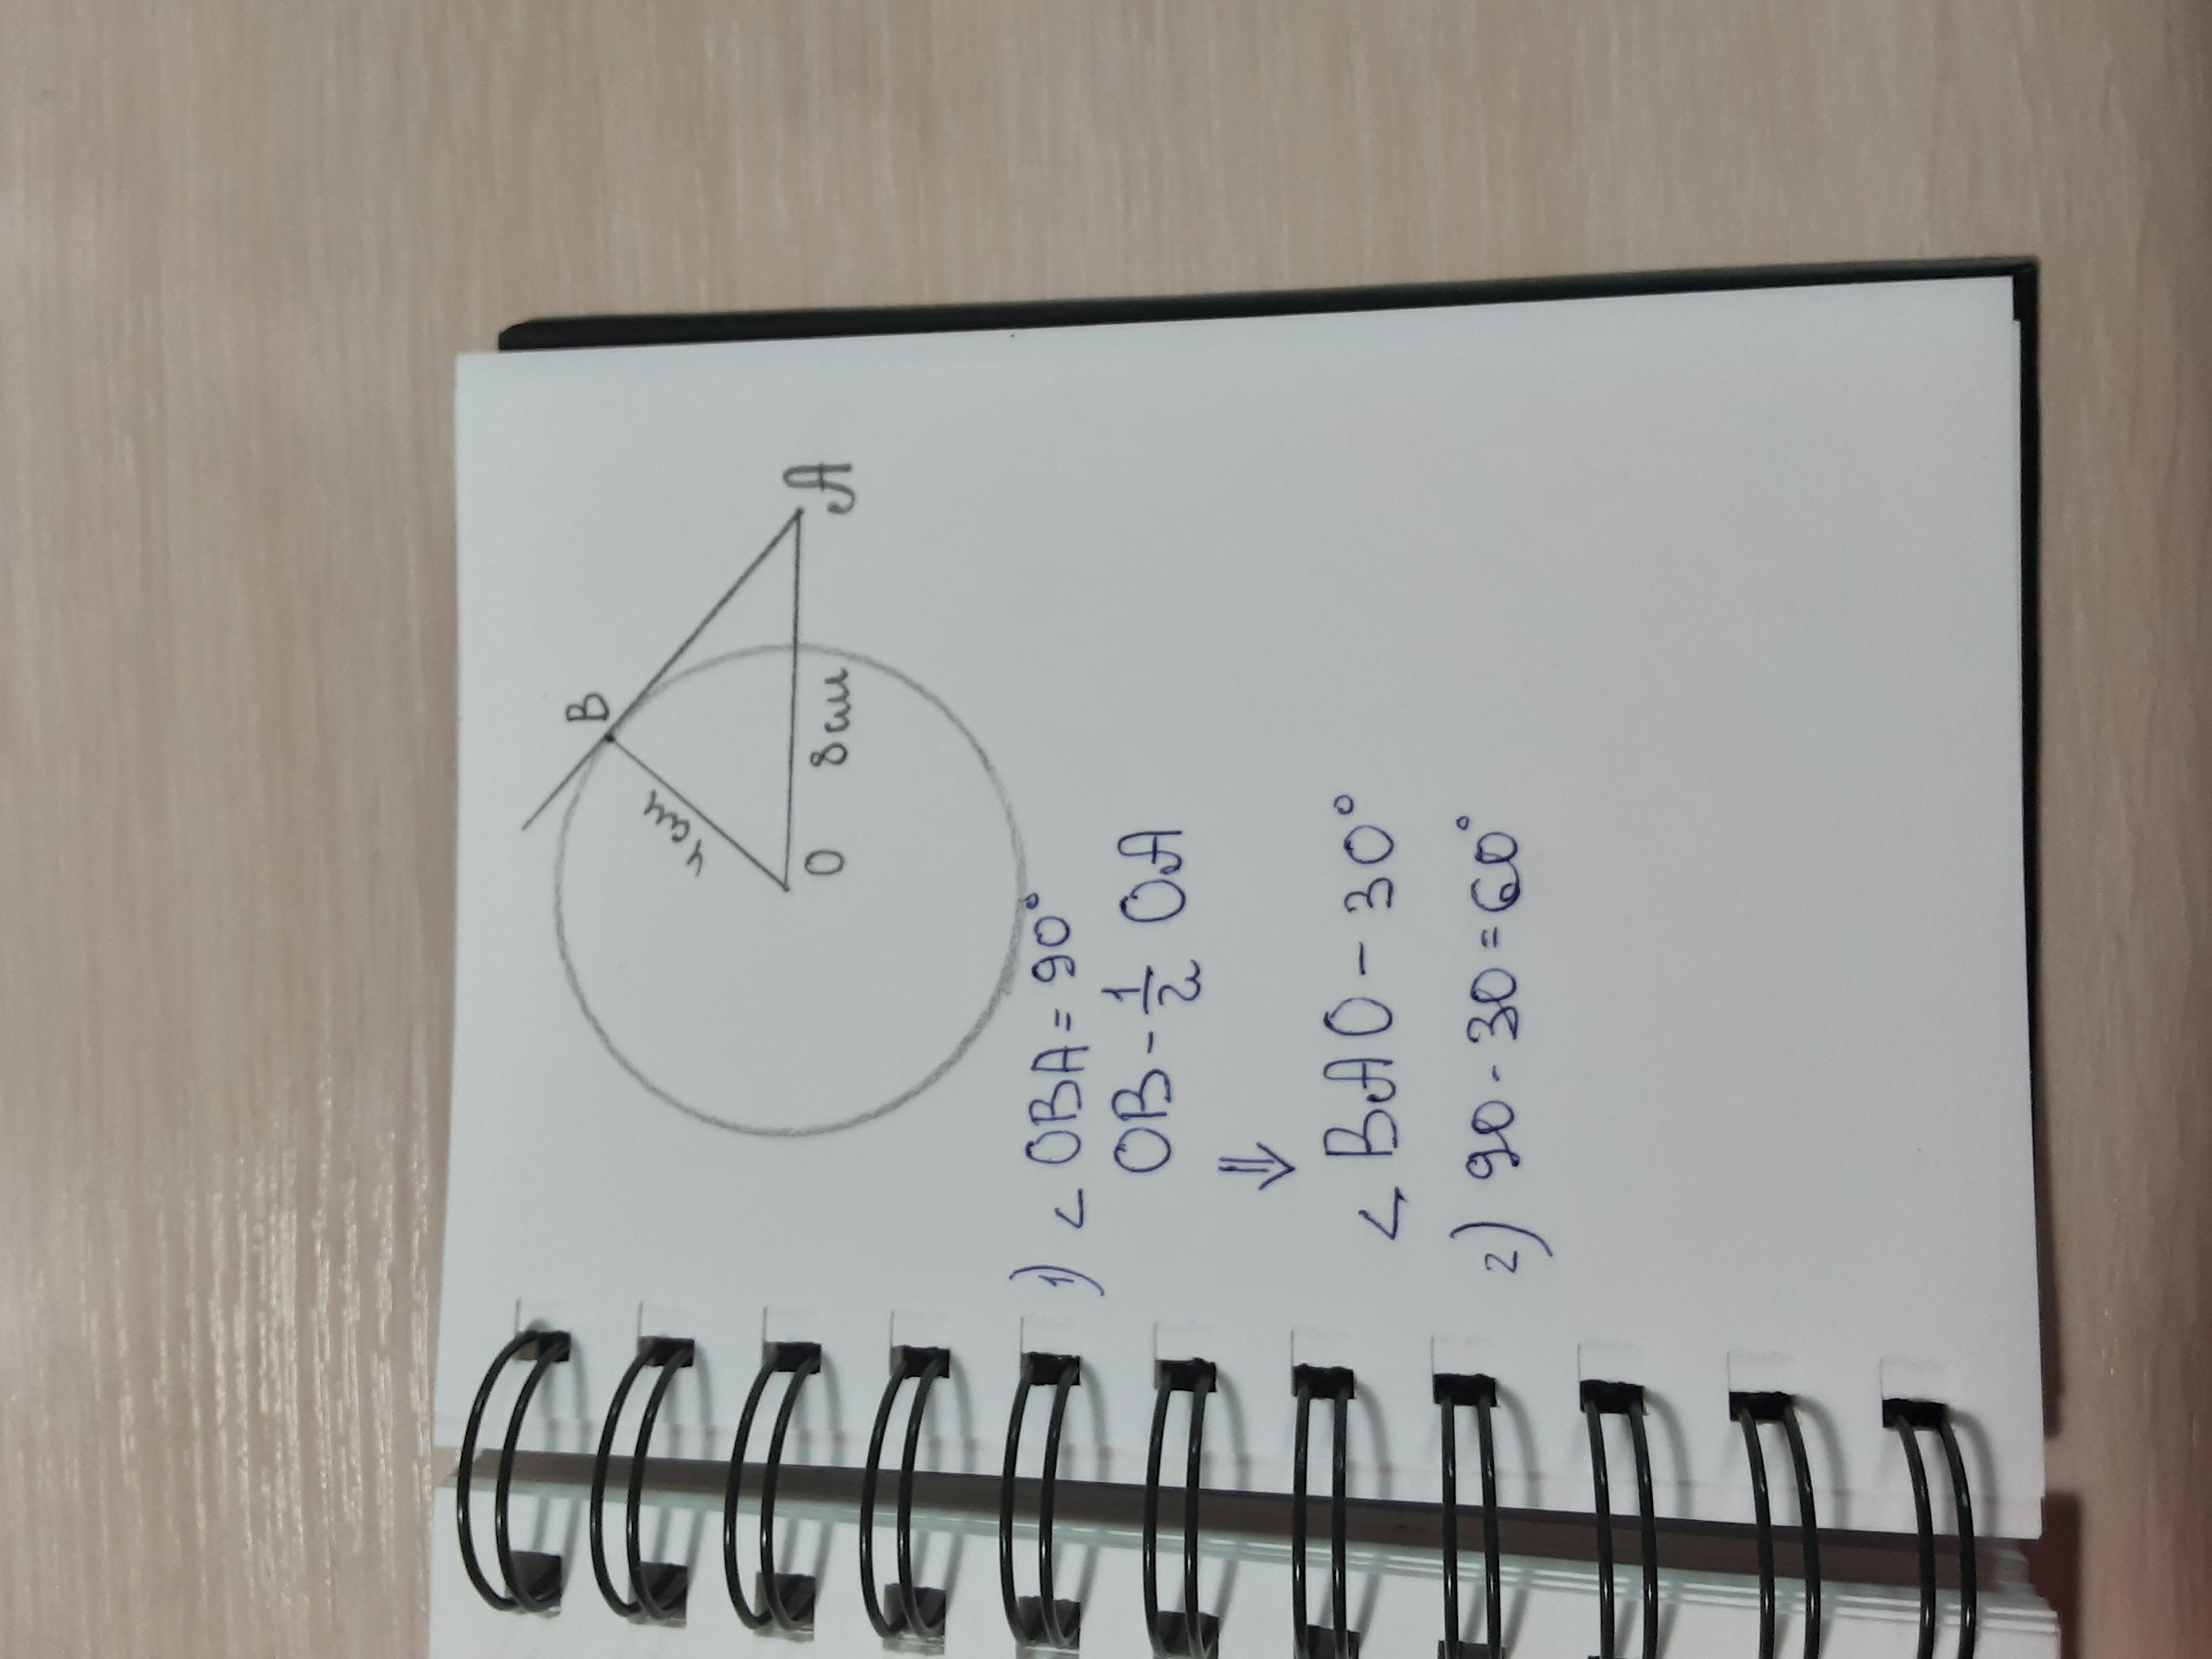 B
A
4см
8см
O
1) < OBA = 90°
OB - 1/2 OA
⇓
< BAO - 30°
2) 90 - 30 = 60°